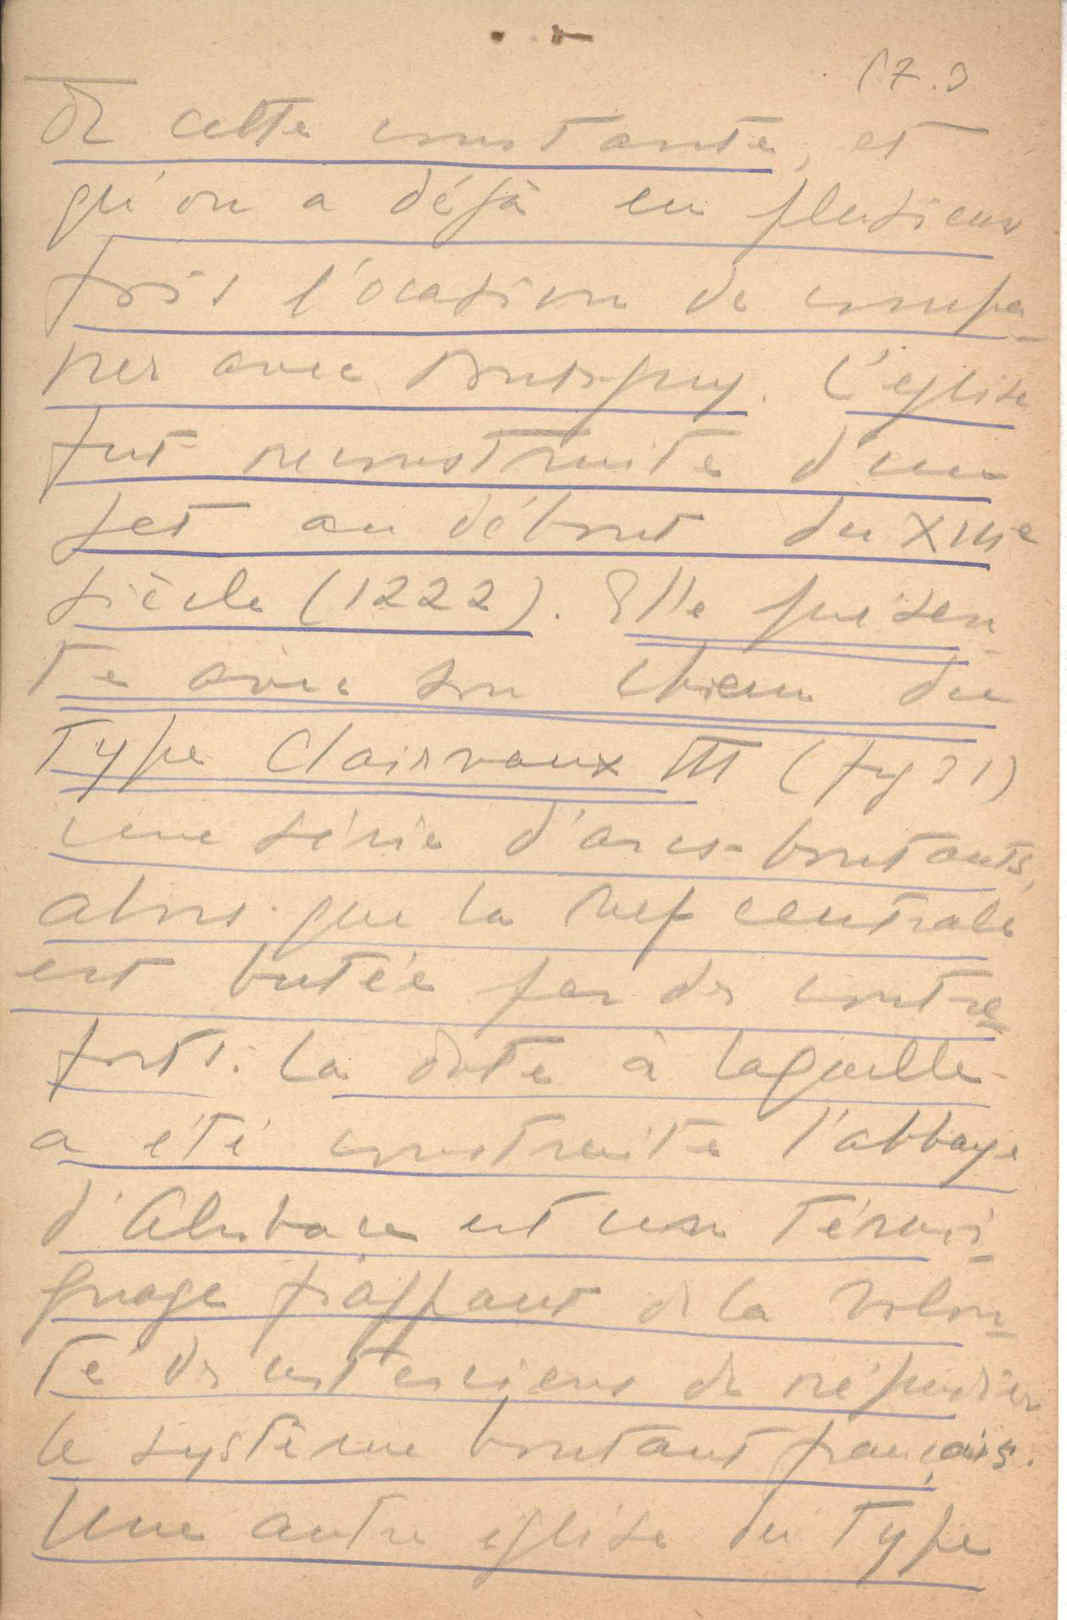 17.3
de cette constante, et
qu'on a déjà eu plusieurs
fois l'occasion de compa-
rer avec . L'église
fut reconstruite d'un
jet au début du XIIIe
siècle (1222). Elle présen-
te avec son chœur du
Type Clairvaux III (fig 31)
une série d'arcs-boutants,
alors que la nef centrale
est butée par des contre-
forts. La date à laquelle
a été construite l'abbaye
d'Alcobaca est un témoi-
gnage frappant de la volon-
té des cisterciens de répudier
le système boutant français.
Une autre église du Type